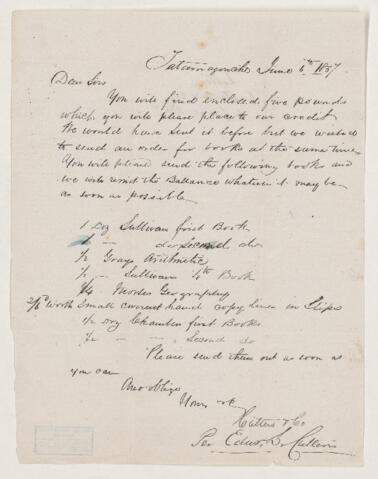 Tatamagouche June 5th 1857
Dear Sirs
You will find enclosed five pounds
which you will please place to our credit
We would have sent it before but we wanted
to send an order for books at the same time.
You will please send the following books and
we will remit the Ballance whatever it may be
as soon as possible
1 Doz Sullivan first Book
1/2 — do Second do
1/2 Grays Arithmetic
1/2 — Sullivans 4th Book
1/4 Morses Geography
2/6 worth small current hand copy lines in Slips
1/2 Doz Chambers first Books
1/2 — — Second do
Please send them out as soon as
you can
And oblige
Yours &c
& Co
Per Edwd